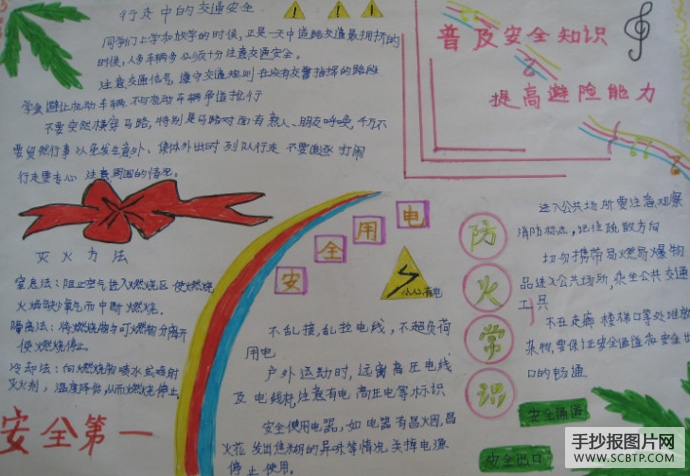 行走中的交通安全
同学们上学和放学的时候，正是一天中道路交通最拥挤的
时候，人多车辆多，必须十分注意交通安全。
注意交通信息，遵守交通规则 在没有交警指挥的路段
学会避让机动车辆，不与机动车辆争道抢行
不要突然横穿马路，特别是马路对面有熟人、朋友呼唤，千万不
要贸然行事 以免发生意外、集体外出时 列队行走 不要追逐 打闹
行走要专心 注意周围的情况。
普及安全知识
提高避险能力
灭火方法
窒息法：阻止空气进入燃烧区 使燃烧
火焰缺少氧气而中断燃烧。
隔离法：将燃烧物与可燃物分离开
使燃烧停止
冷却法：向燃烧物喷水或喷射
灭火剂，温度降低，从而燃烧停止
安全第一
安全用电
小心有电
不乱接，乱拉电线，不超负荷
用电
户外运动时，远离高压电线
及电线杆，注意有电 高压电等标识
安全使用电器，如电器有冒火圈，冒
火花 发出焦糊的异味等情况 关掉电源
停止使用。
防火常识
进入公共场所要注意观察
消防标志，记住疏散方向
切勿携带易燃易爆物
品进入公共场所，乘坐公共交通
工具
不在走廊 楼梯口等处堆放
杂物，要保证安全通道和安全出
口的畅通
安全通道
安全出口
手抄报图片网
WWW.SCBTP.COM